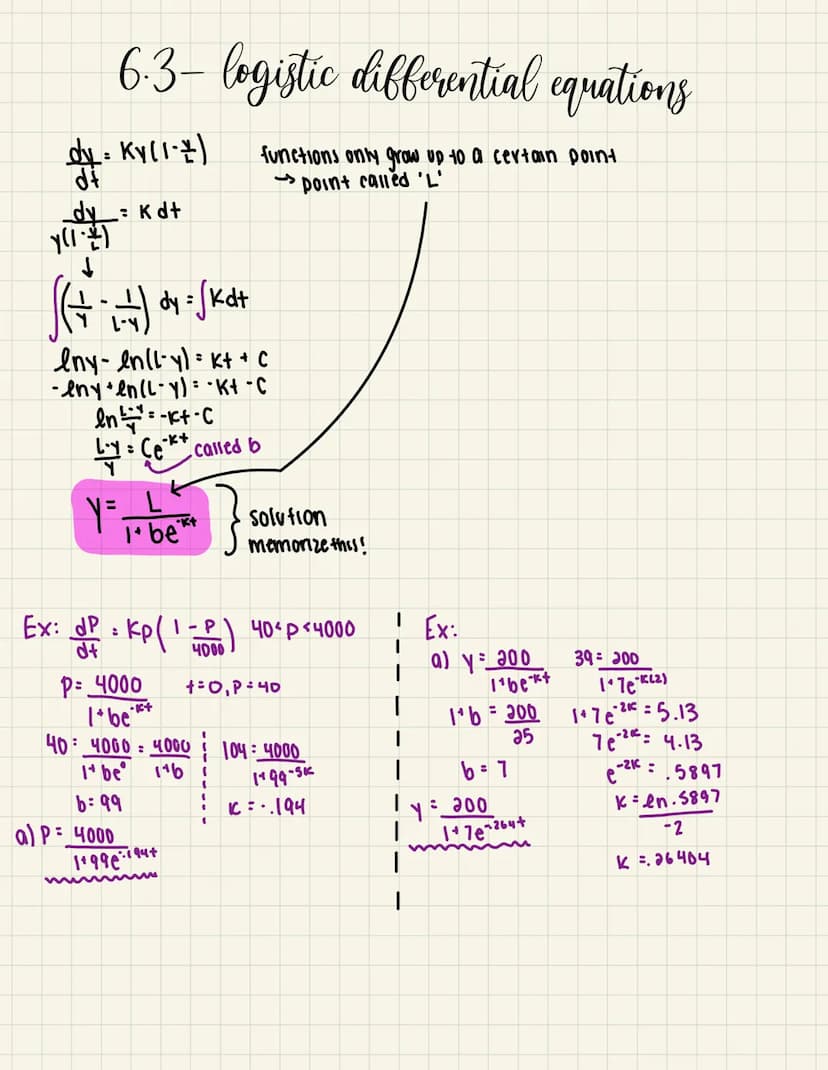 6.3- logistic differential equations
dy/dt = Ky(1-y/L)
functions only grow up to a certain point
→ point called 'L'
dy/y(1-y/L) = K dt
↓
∫(1/y - 1/L-y) dy = ∫Kdt
lny - ln(L-y) = Kt + C
-lny + ln(L-y) = -Kt - C
ln L-y/y = -Kt - C
L-y/y = Ce^-Kt called b
y = L/1+be^-Kt } solution
memorize this!
Ex: dP/dt = Kp(1-P/4000) 40<p<4000
P = 4000/1+be^-Kt t=0, P=40
40 = 4000/1+be^0 = 4000/1+b
b = 99
104 = 4000/1+99^-5K
K = -.194
a) P = 4000/1+99e^-.194t
Ex:
a) y = 200/1+be^-Kt
1+b = 200/25
b = 7
y = 200/1+7e^-.264t
39 = 200/1+7e^-K(2)
1+7e^-2K = 5.13
7e^-2K = 4.13
e^-2K = .5897
K = ln.5897/-2
K = .26404